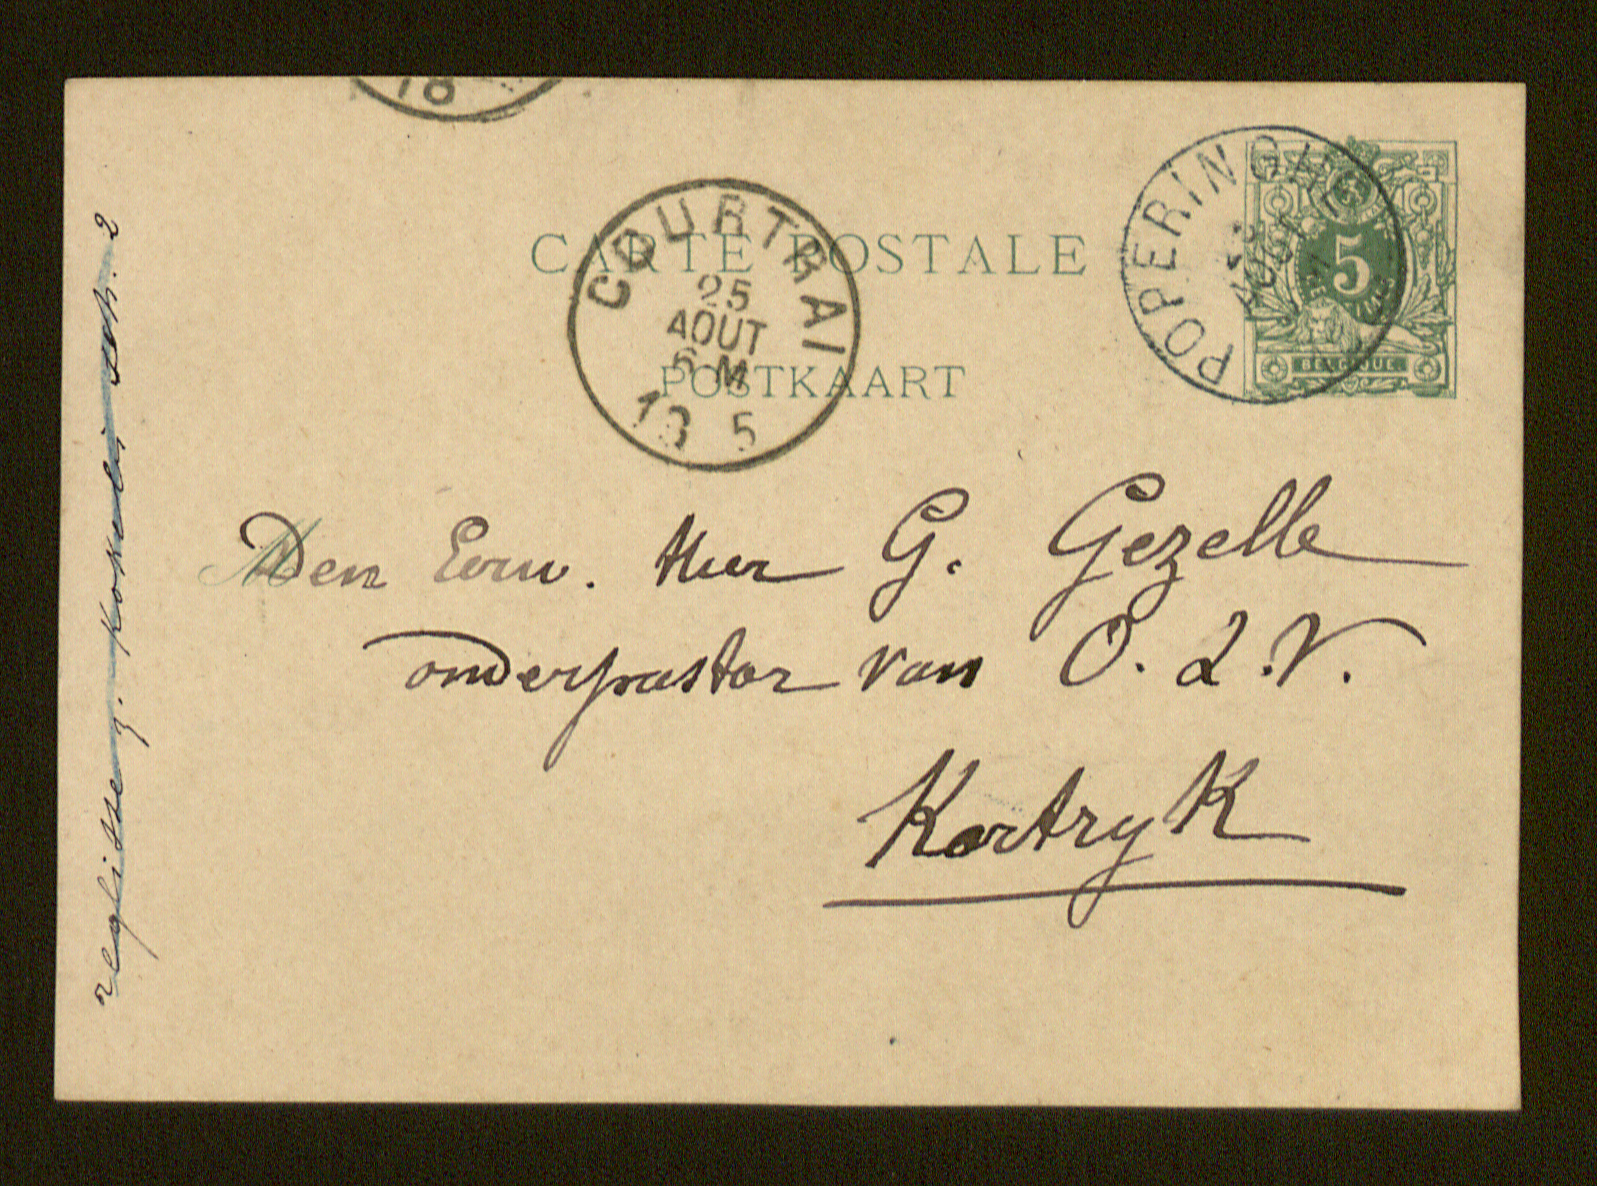 18
CARTE POSTALE
POSTKAART
COURTRAI
25
AOUT
6 M
18 5
POPERINGHE
AOUT
5
BELGIQUE
Den Eerw. Heer G. Gezelle
onderpastor van O. L. V.
Kortryk